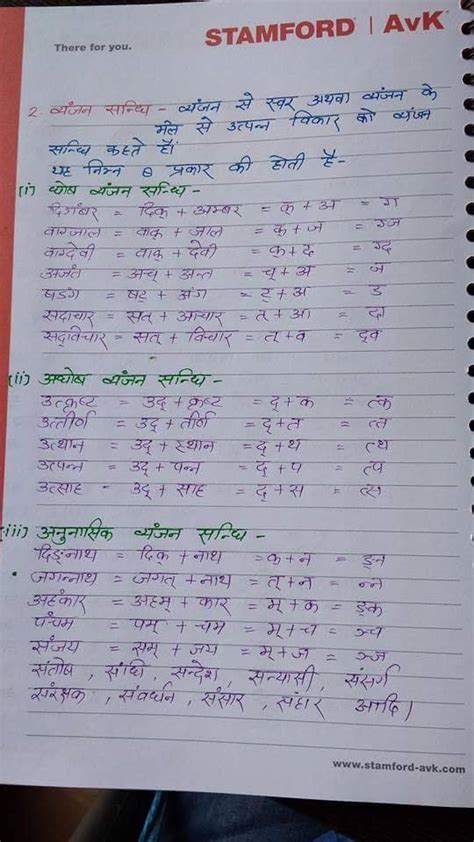 There for you.
STAMFORD | AvK
2. व्यंजन सन्धि - व्यंजन से स्वर अथवा व्यंजन के
मेल से उत्पन्न विकार को व्यंजन
सन्धि कहते हैं।
यह निम्न 6 प्रकार की होती है-
(i) घोष व्यंजन सन्धि -
दिगंबर = दिक् + अम्बर = क् + अ = ग
वाग्जाल = वाक् + जाल = क् + ज = ग्ज
वाग्देवी = वाक् + देवी = क् + द = ग्द
अजंत = अच् + अन्त = च् + अ = ज
षडंग = षट् + अंग = ट् + अ = ड
सदाचार = सत् + आचार = त् + आ = दा
सद्विचार = सत् + विचार = त् + व = द्व
(ii) अघोष व्यंजन सन्धि -
उत्कृष्ट = उद् + कृष्ट = द् + क = त्क
उत्तीर्ण = उद् + तीर्ण = द् + त = त्त
उत्थान = उद् + स्थान = द् + थ = त्थ
उत्पन्न = उद् + पन्न = द् + प = त्प
उत्साह - उद् + साह = द् + स = त्स
(iii) अनुनासिक व्यंजन सन्धि -
दिङ्नाथ = दिक् + नाथ = क + न = ङ्न
जगन्नाथ = जगत् + नाथ = त् + न = न्न
अहंकार = अहम् + कार = म् + क = ङ्क
पंचम = पम् + चम = म् + च = ञ्च
संजय = सम् + जय = म् + ज = ञ्ज
संतोष , संधि , सन्देश , सन्यासी , संसर्ग
संरक्षक , संवर्धन , संसार , संहार आदि।
www.stamford-avk.com